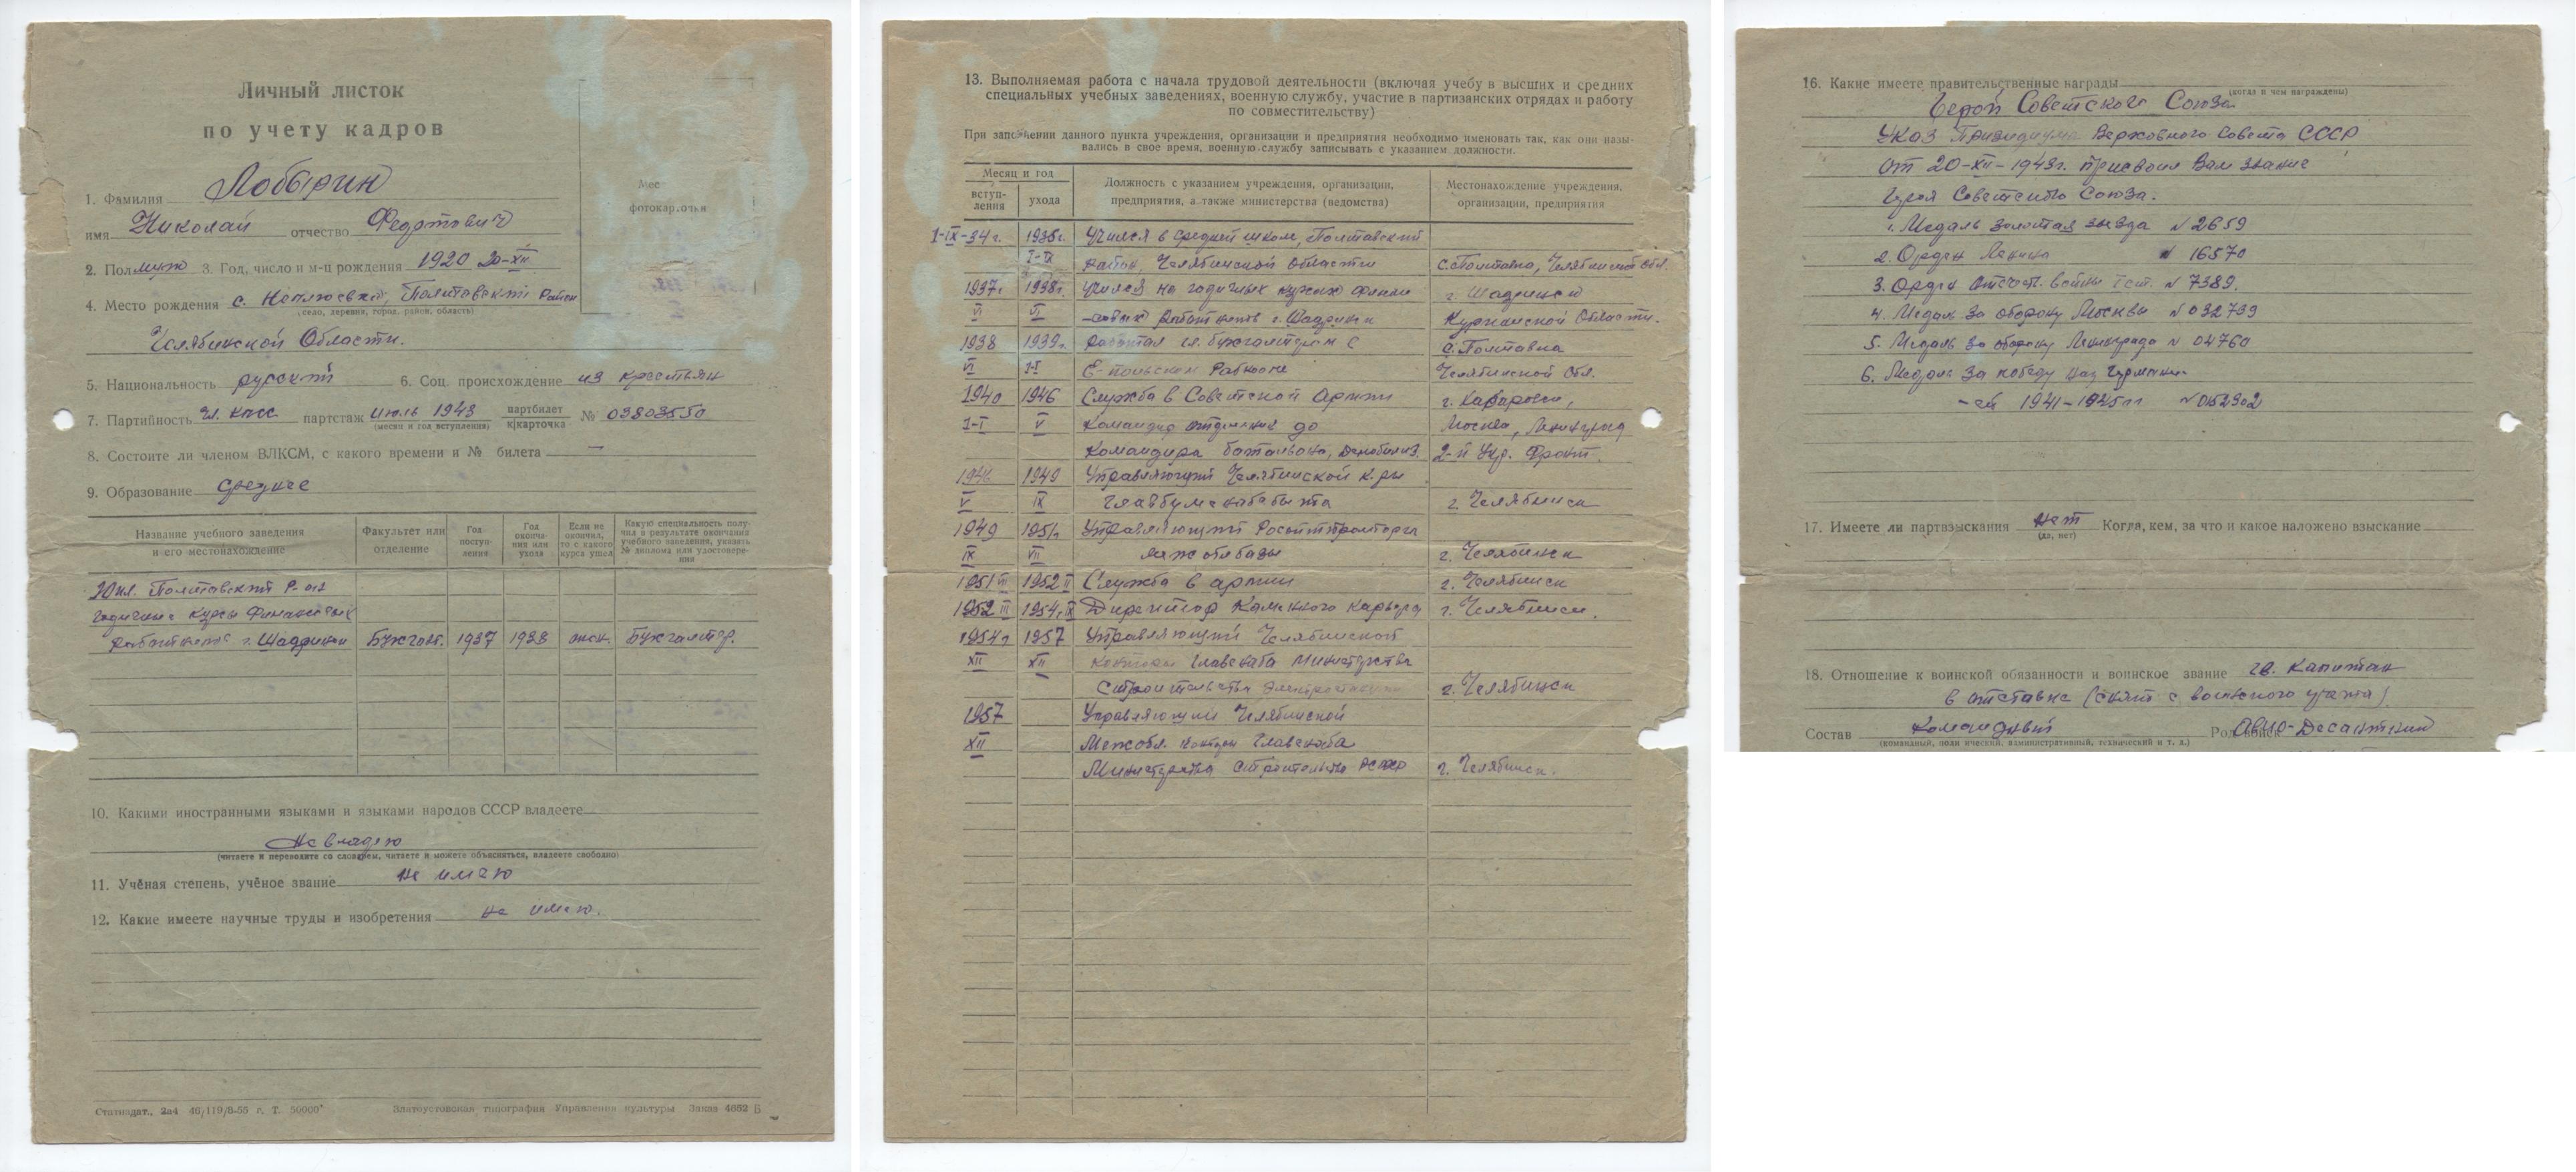 Личный листок
по учету кадров
Мес
фотокар.очки
1. Фамилия Лобырин
имя Николай отчество Федотович
2. Пол муж 3. Год, число и м-ц рождения 1920 20-XII
4. Место рождения с. Неплюевка, Полтавский район
(село, деревня, город, район, область)
Челябинской Области.
5. Национальность русский 6. Соц. происхождение из крестьян
7. Партийность чл. КПСС партстаж июль 1943 партбилет № 03803550
(месяц и год вступления) к|карточка
8. Состоите ли членом ВЛКСМ, с какого времени и № билета —
9. Образование среднее
Название учебного заведения и его местонахождение
Факультет или отделение
Год поступ-ления
Год оконча-ния или ухода
Если не окончил, то с какого курса ушел
Какую специальность полу-чил в результате окончания учебного заведения, указать № диплома или удостовере-ния
Полтавский р-он
годичные курсы Финансовых
работников г. Шадринск Бухгалт. 1937 1938 окон. Бухгалтер.
10. Какими иностранными языками и языками народов СССР владеете
Не владею
(читаете и переводите со словарем, читаете и можете объясняться, владеете свободно)
11. Учёная степень, учёное звание не имею
12. Какие имеете научные труды и изобретения не имею.
Статиздат., 2а4 46/119/8-55 г. Т. 50000 Златоустовская типография Управления культуры Заказ 4662 Б
13. Выполняемая работа с начала трудовой деятельности (включая учебу в высших и средних
специальных учебных заведениях, военную службу, участие в партизанских отрядах и работу
по совместительству)
При заполнении данного пункта учреждения, организации и предприятия необходимо именовать так, как они назы-
вались в свое время, военную службу записывать с указанием должности.
Месяц и год
вступ-ления
ухода
Должность с указанием учреждения, организации,
предприятия, а также министерства (ведомства)
Местонахождение учреждения,
организации, предприятия
1-IX-34г. 1936г. Учился в средней школе, Полтавский
район, Челябинской области с.Полтавка, Челябинской обл.
1937г 1938г. учился на годичных курсах финан
VI VI -совых работников г. Шадринск г. Шадринск
Курганской Области.
1938 1939г. работал гл. бухгалтером с с.Полтавка
VI 1-I Челябинской обл.
1940 1946 Служба в Советской Армии г. Хабаровск,
1-I V Командир отделения до Москва, Ленинград
Командира батальона, демобилиз. 2-й Укр. Фронт.
1946 1949 Управляющий Челябинской к.ры
V IX Главбумснабсбыта г. Челябинск
1949 1951г Управляющий
IX VII межоблбазы г. Челябинск
1951 VII 1952 II Служба в армии г. Челябинск
1952 III 1954г. IX Директор Каменного карьера г. Челябинск.
1954г 1957 Управляющий Челябинской
XII XII конторы Главснаба Министерства
строительства Электростанций г. Челябинск
1957 Управляющий Челябинской
XII Межобл. конторы Главснаба
Министерства строительства РСФСР г. Челябинск.
16. Какие имеете правительственные награды
(когда и чем награждены)
Герой Советского Союза
Указ Президиума Верховного Совета СССР
от 20-XII-1943г. присвоил Вам звание
Героя Советского Союза.
1. Медаль Золотая звезда № 2659
2. Орден Ленина № 16570
3. Орден Отечест. войны I ст. № 7389.
4. Медаль За оборону Москвы № 032739
5. Медаль За оборону Ленинграда № 04760
6. Медаль За победу над Германи-
-ей 1941-1945гг № 0152902
17. Имеете ли партвзыскания нет Когда, кем, за что и какое наложено взыскание
(да, нет)
18. Отношение к воинской обязанности и воинское звание гв. Капитан
в отставке (снят с воинского учета)
Состав Командный Род войск Авио-Десантный
(командный, политический, административный, технический и т. д.)